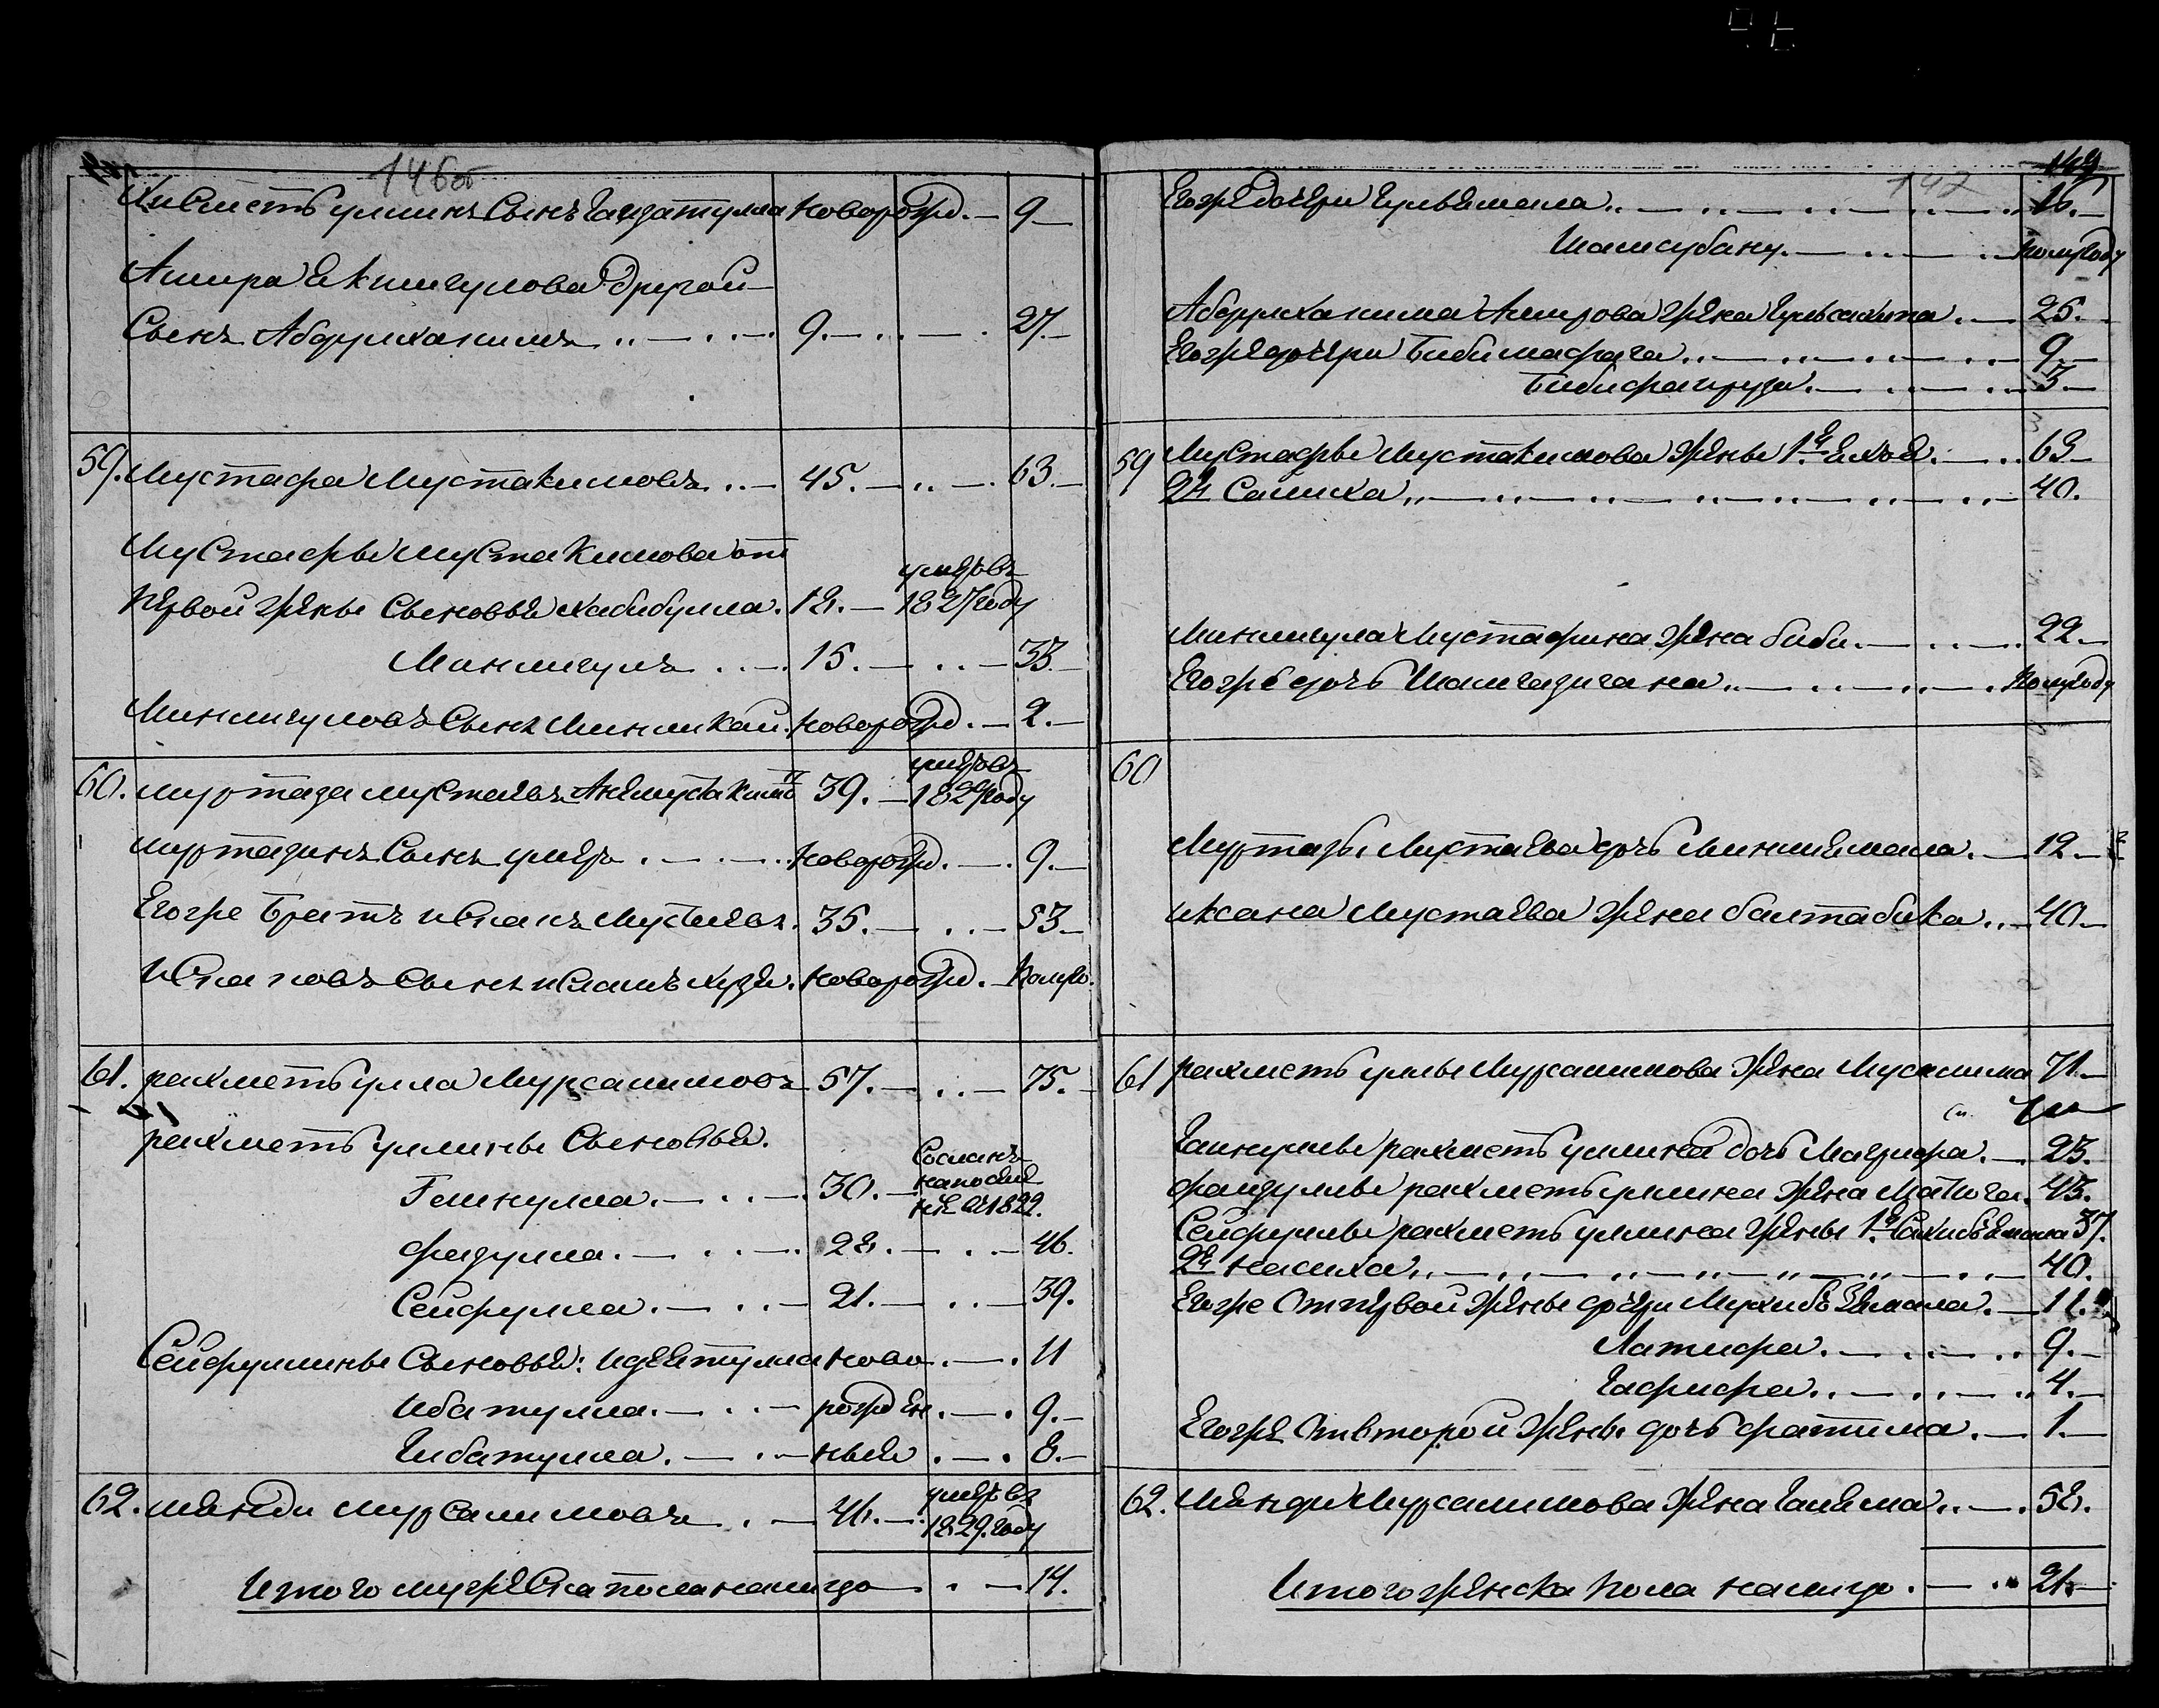 146об
Хисметьуллинъ Сынъ Гаидатулла новорожд. — 9 —
Амира Якшигулова другой
Сынъ Абдулхакимъ 9. — 27. —
59. Мустафа Мустакимовъ 45. — 63. —
Мустафы Мустакимова от
первой жены Сыновья Хабибулла. 18. — умеръ въ 1827 году
Минлигулъ 15. — 33. —
Минлигуловъ Сынъ Минликай. новорожд. — 2. —
60. Муртаза Мустаевъ А не Мустакимъ 39. — умеръ въ 1829 году
Муртазинъ Сынъ умеръ новорожд. — 9. —
Егоже Братъ Иксанъ Мустаевъ. 35. — 53 —
Иксановъ Сынъ Исламъ хузя. новорожд. — полуго.
61. Рахметьулла Мурсалимовъ 57. — 75. —
Рахметьуллины Сыновья.
Гайнулла. — 30. — Сосланъ на поселение въ 1822.
Фазулла. — 28. — 46.
Сейфулла. — 21. — 39.
Сейфуллины Сыновья: Идеятулла ново — 11
Ибатулла. — рожден. — 9. —
Гибатулла. — ныя — 8. —
62. Мянди Мурсалимовъ — 46. — умеръ въ 1829. году
Итого мужеска пола налицо — 14.
147
Егоже дочери Гульямала 16. —
Шамсубану. — полугоду
Абдулхакима Амирова жена Гульсахипа. — 25.
Егоже дочери Бибимафага 9. —
Бибифагруза. — 3 —
59 Мустафы Мустакимова жены 1я Ямья. — 63 —
2я Салиха 40.
Минлигула Мустафина жена биби. — 22 —
Егоже дочь Шамгазигана полугоду
60
Муртазы Мустаева дочь Минлиямала. — 12 —
Иксана Мустаева жена балтабика 40 —
61 Рахметьуллы Мурсалимова жена Муслима 71. —
Гайнуллы рахметьуллина дочь Магруфа. — 23.
Фаизуллы рахметьуллина жена Мапюга. 43.
Сейфуллы рахметьуллина жены 1я Сахибямала 37.
2я насиха 40.
Егоже От первой жены дочери Мухибъямала. — 11.
Латифа. — 9. —
Гафифа 4. —
Егоже От второй жены дочь фатима. — 1. —
62. Мянди Мурсалимова жена Галима 58.
Итого женска пола налицо. — 21. —